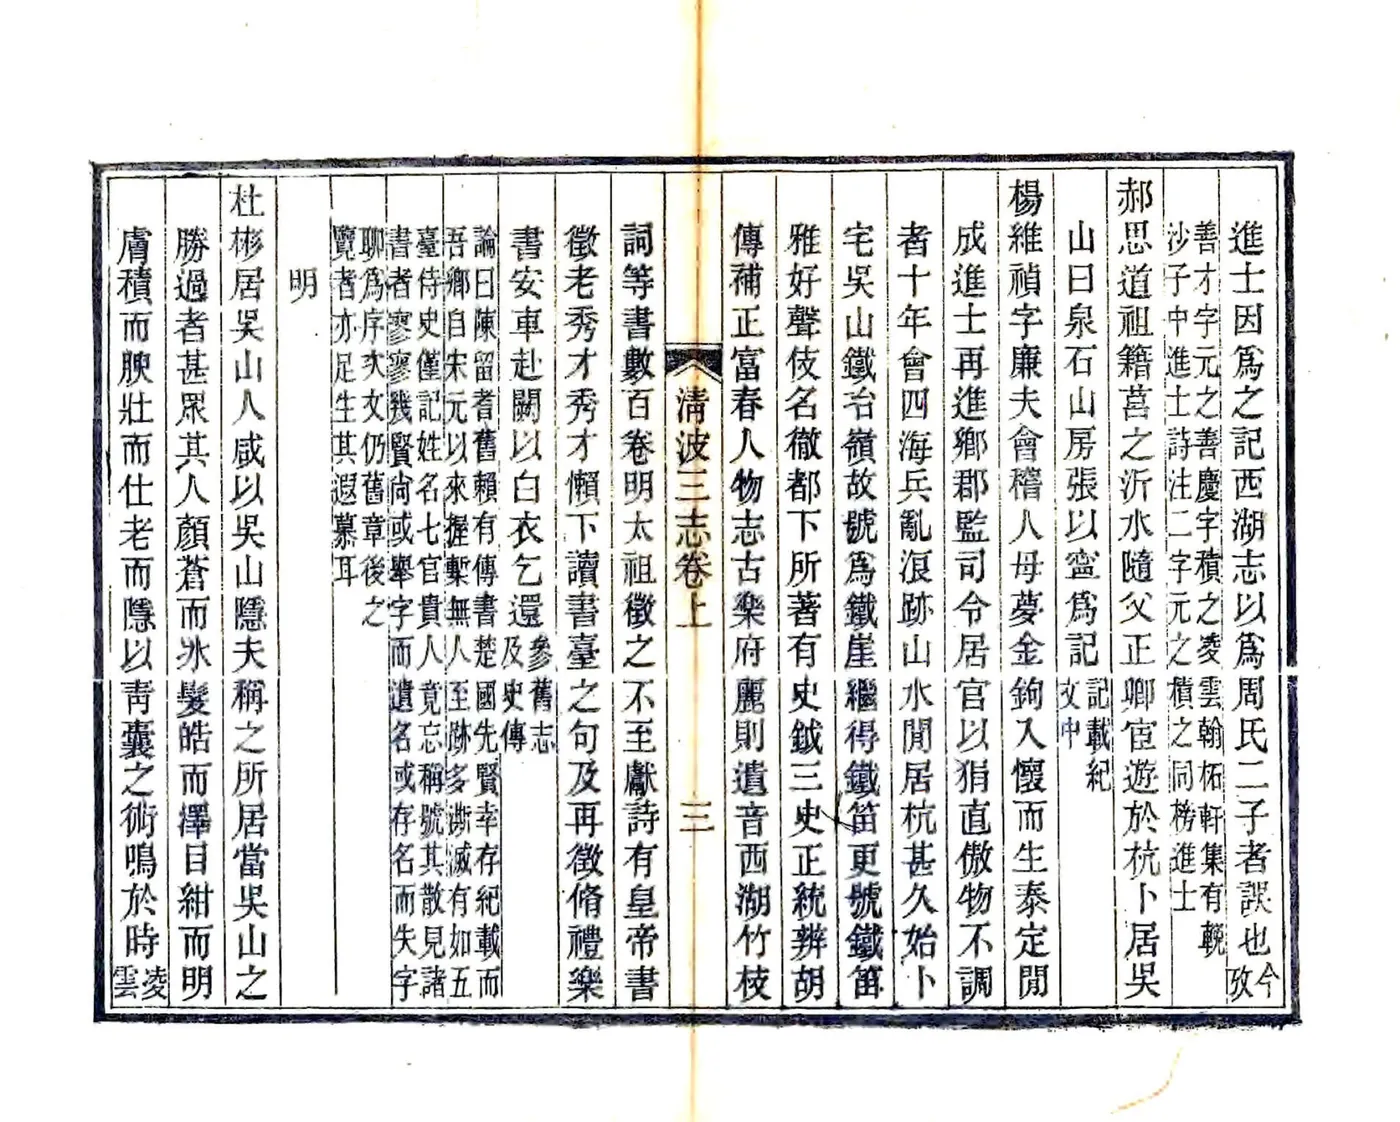 進士因爲之記西湖志以爲周氏二子者誤也今攷
善才字元之善慶字積之凌雲翰柘軒集有輓
沙子中進士詩注二字元之積之同榜進士
郝思道祖籍莒之沂水隨父正卿宦遊於杭卜居吳
山曰泉石山房張以寧爲記記載紀文中
楊維禎字廉夫會稽人母夢金鉤入懷而生泰定閒
成進士再進鄉郡監司令居官以狷直傲物不調
者十年會四海兵亂浪跡山水閒居杭甚久始卜
宅吳山鐵冶嶺故號爲鐵崖繼得鐵笛更號鐵笛
雅好聲伎名徹都下所著有史鉞三史正統辨胡
傳補正富春人物志古樂府麗則遺音西湖竹枝
清波三志卷上
三
詞等書數百卷明太祖徵之不至獻詩有皇帝書
徵老秀才秀才懶下讀書臺之句及再徵脩禮樂
書安車赴闕以白衣乞還參舊志及史傳
論曰陳留耆舊賴有傳書楚國先賢幸存紀載而
吾鄉自宋元以來握槧無人至跡多澌滅有如五
臺侍史僅記姓名七官貴人竟忘稱號其散見諸
書者寥寥幾賢尙或舉字而遺名或存名而失字
聊爲序次文仍舊章後之
覽者亦足生其遐慕耳
明
杜彬居吳山人咸以吳山隱夫稱之所居當吳山之
勝過者甚眾其人顏蒼而氷髮皓而澤目紺而明
膚積而腴壯而仕老而隱以靑囊之術鳴於時凌雲